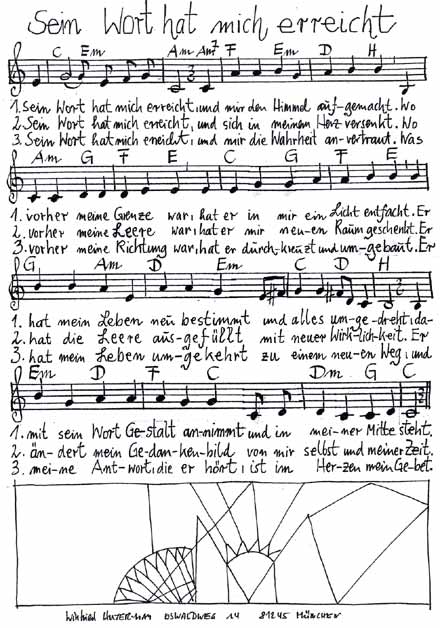 Sein Wort hat mich erreicht
C Em Am Am7 F Em D H
1. Sein Wort hat mich erreicht, und mir den Himmel auf-gemacht. Wo
2. Sein Wort hat mich erreicht, und sich in meinem Herz versenkt. Wo
3. Sein Wort hat mich erreicht, und mir die Wahrheit an-vertraut. Was
Am G F E C G F E
1. vorher meine Grenze war, hat er in mir ein Licht entfacht. Er
2. vorher meine Leere war, hat er mir neu-en Raum geschenkt. Er
3. vorher meine Richtung war, hat er durch-kreuzt und um-gebaut. Er
G Am D Em C D H
1. hat mein Leben neu bestimmt und alles um-ge-dreht, da-
2. hat die Leere aus-gefüllt mit neuer Wirk-lich-keit. Er
3. hat mein Leben um-gekehrt zu einem neu-en Weg, und
Em D F C Dm G C
1. mit sein Wort Ge-stalt an-nimmt und in mei-ner Mitte steht.
2. än-dert mein Ge-dan-ken-bild von mir selbst und meiner Zeit.
3. mei-ne Ant-wort, die er hört, ist im Her-zen mein Ge-bet.
Winfried OSWALDWEG 14 81245 MÜNCHEN